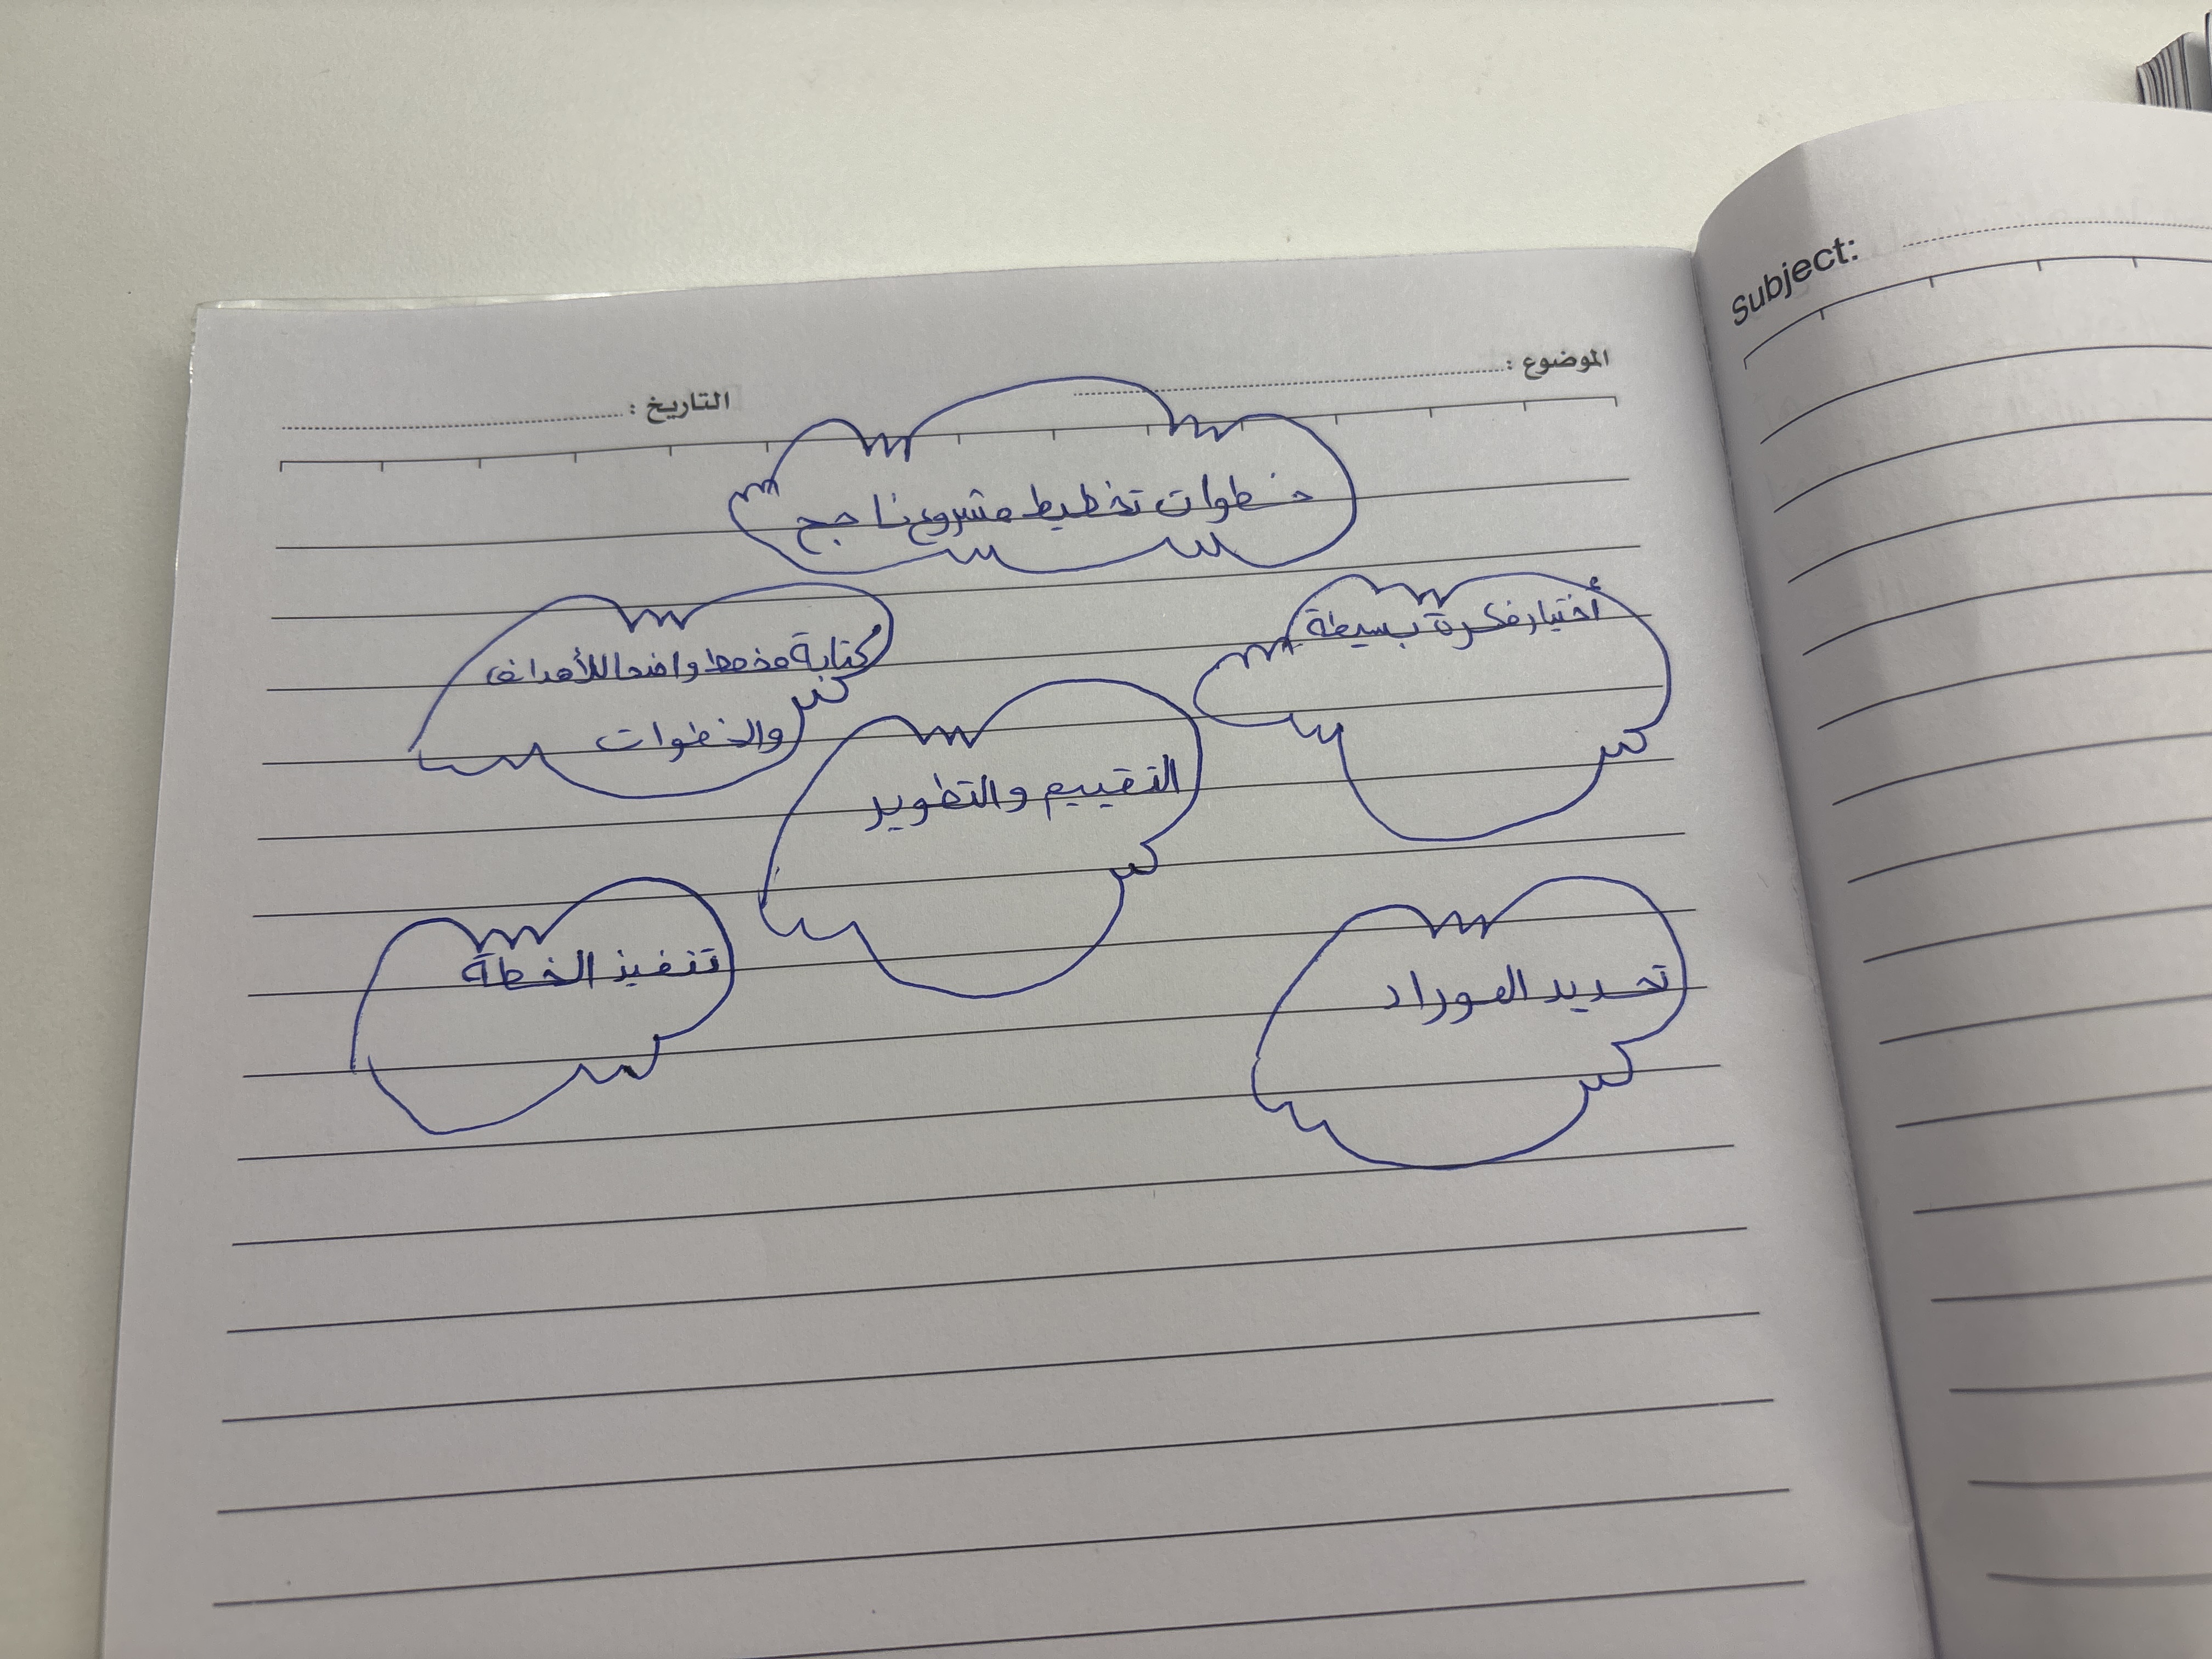 Subject:
الموضوع :
التاريخ :
خطوات تخطيط مشروع ناجح
أختيار فكرة بسيطة
كتابة مخطط واضحا للأهداف
والخطوات
التقييم والتطوير
تحديد الموراد
تنفيذ الخطة